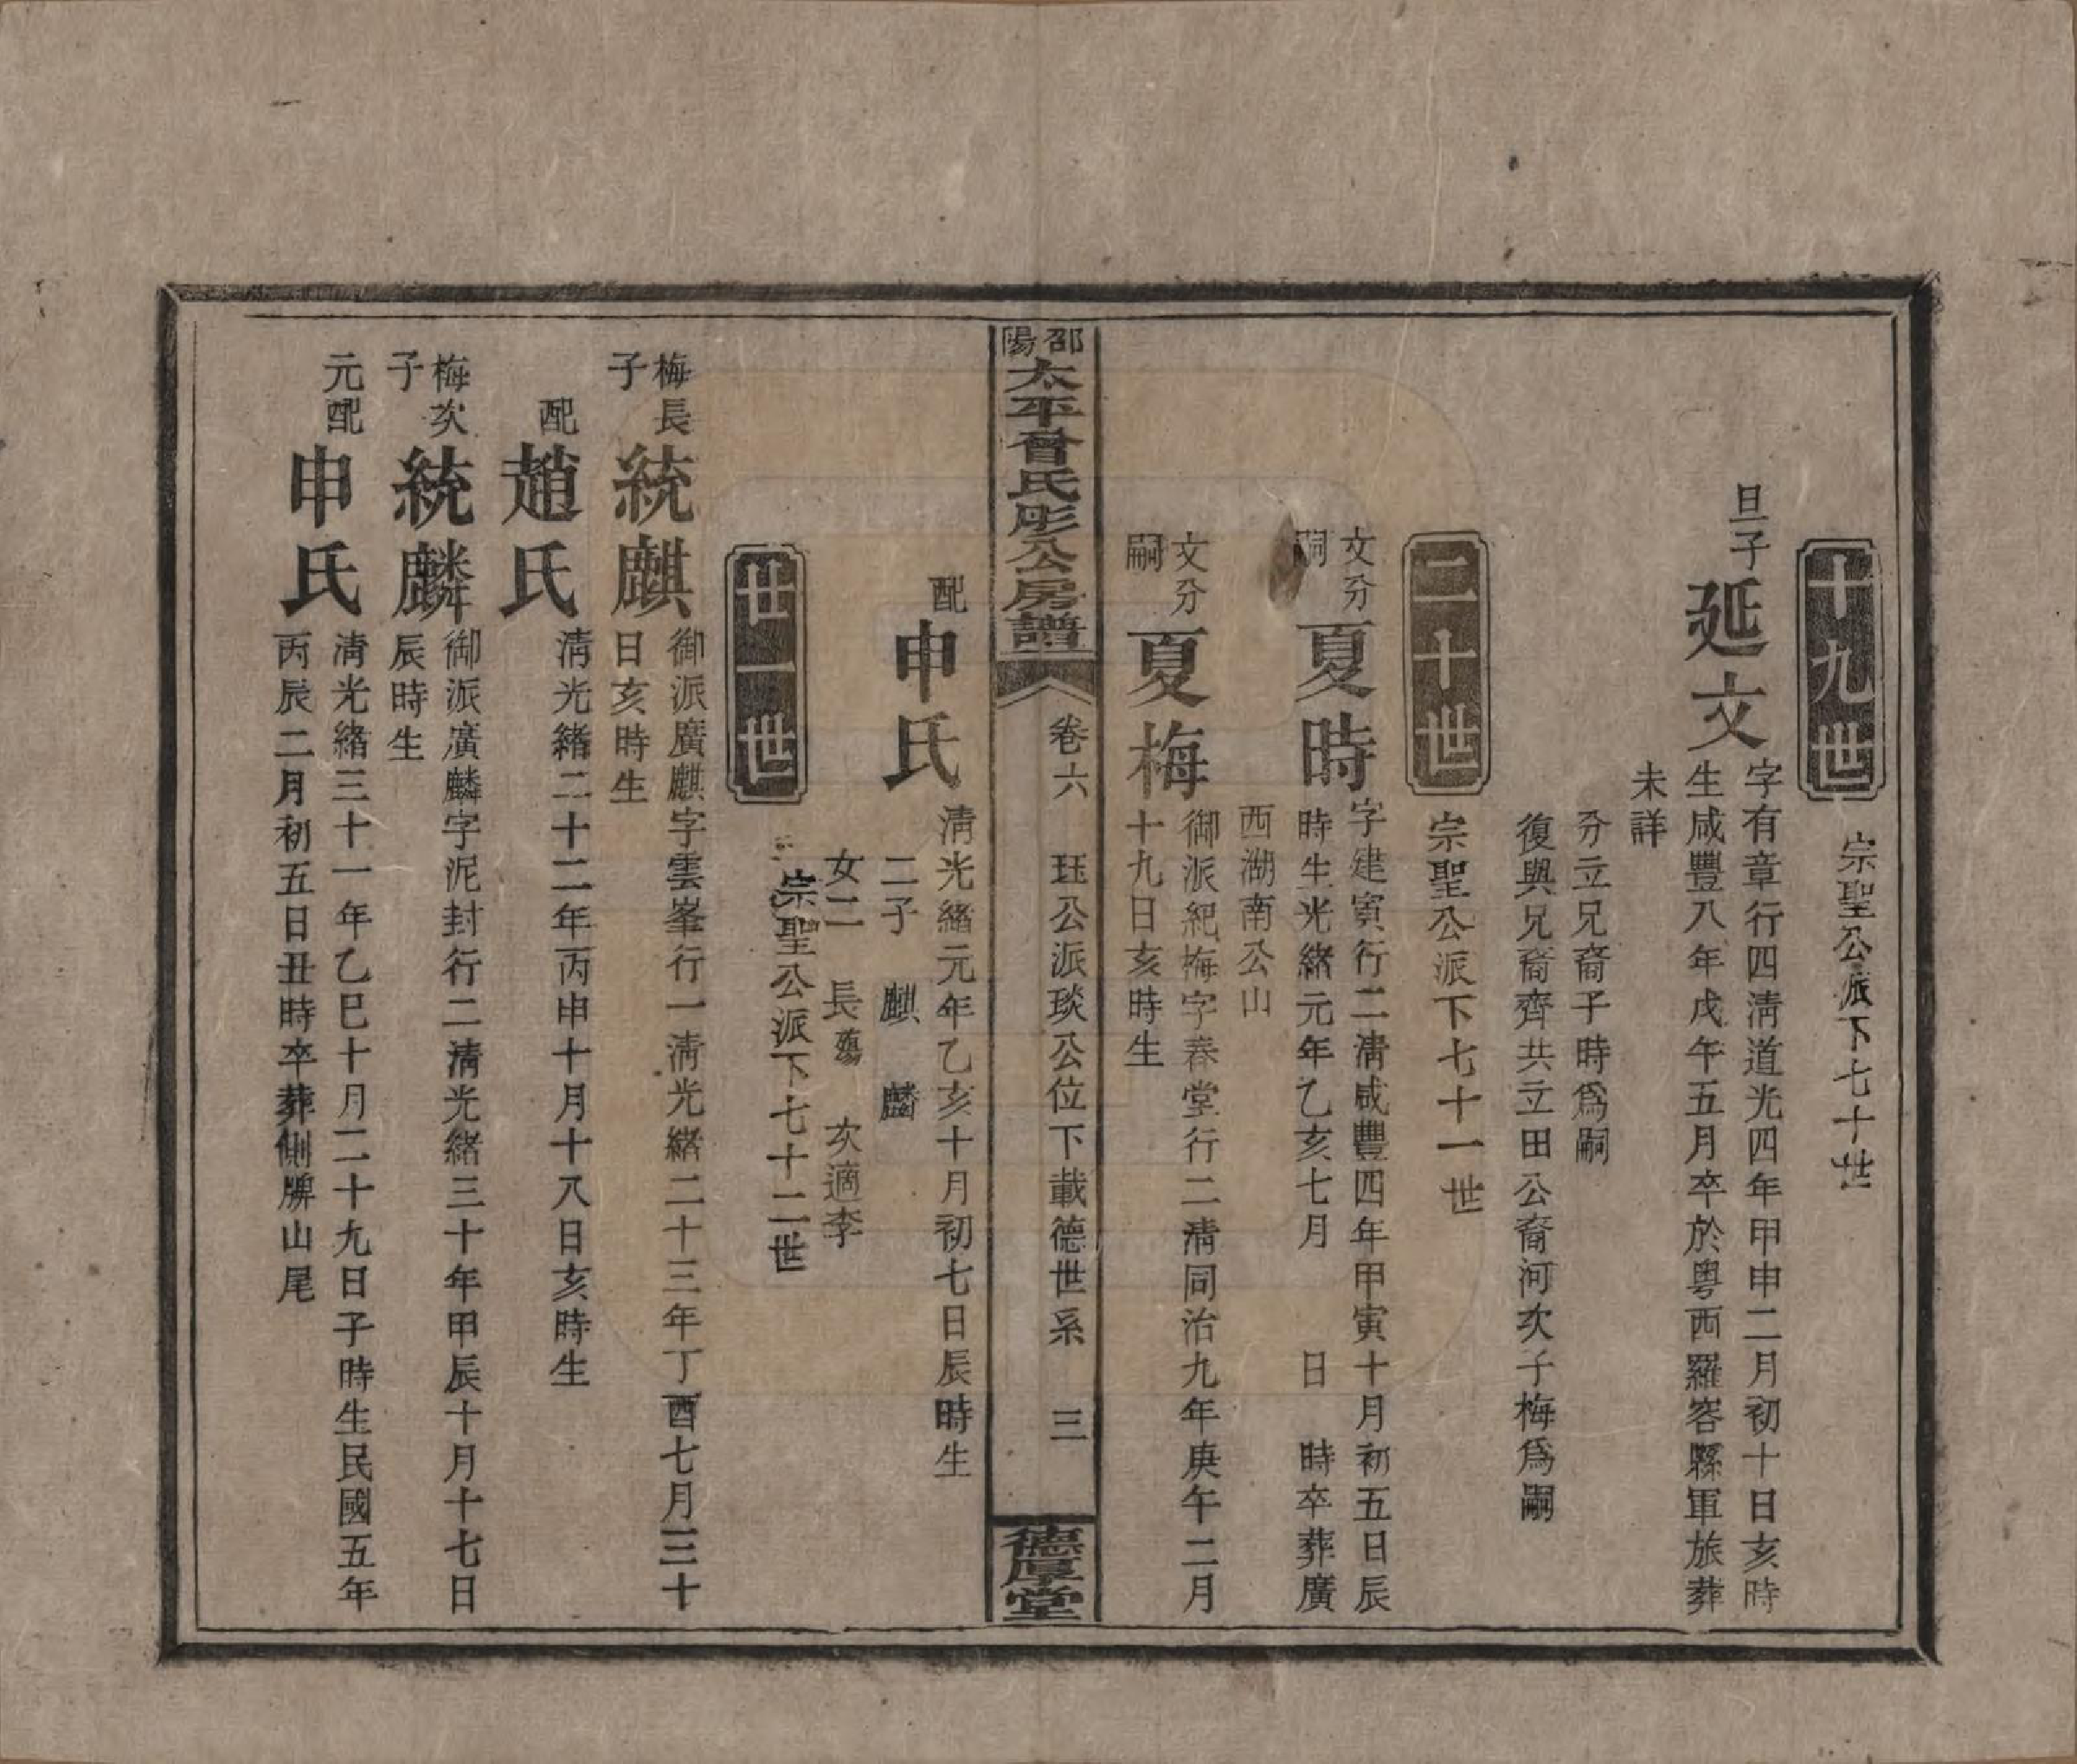 十九世
宗聖公派下七十世
旦子
延文
字有章行四淸道光四年甲申二月初十日亥時
生咸豐八年戊午五月卒於粵西羅容縣軍旅葬
未詳
分立兄裔子時爲嗣
復與兄裔齊共立田公裔河次子梅爲嗣
二十世
宗聖公派下七十一世
文分
嗣
夏時
字建寅行二淸咸豐四年甲寅十月初五日辰
時生光緖元年乙亥七月 日 時卒葬廣
西湖南公山
文分
嗣
夏梅
御派紀梅字春堂行二淸同治九年庚午二月
十九日亥時生
邵陽
太平曾氏彤公房譜
卷六 珏公派琰公位下載德世系 三
德厚堂
配
申氏
淸光緖元年乙亥十月初七日辰時生
二子 麒 麟
女二 長殤 次適李
廿一世
宗聖公派下七十二世
梅長
子
統麒
御派廣麒字雲峯行一淸光緖二十三年丁酉七月三十
日亥時生
配
趙氏
淸光緖二十二年丙申十月十八日亥時生
梅次
子
統麟
御派廣麟字泥封行二淸光緖三十年甲辰十月十七日
辰時生
元配
申氏
淸光緖三十一年乙巳十月二十九日子時生民國五年
丙辰二月初五日丑時卒葬側牌山尾